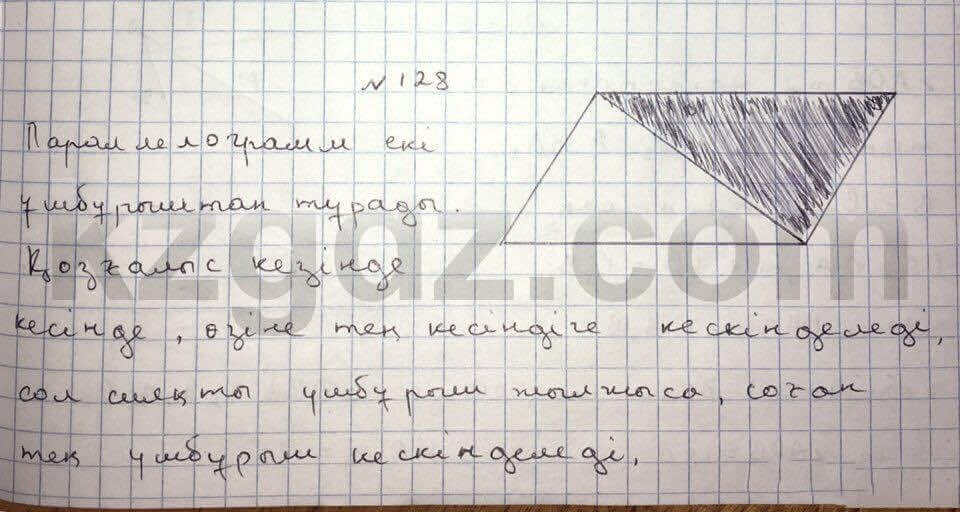 № 128
Параллелограмм екі
үшбұрыштан тұрады.
Қозғалыс кезінде
кесінде, өзіне тең кесіндіге кескінделеді,
сол сияқты үшбұрыш жылжыса, соған
тең үшбұрыш кескінделеді,
kzgdz.com